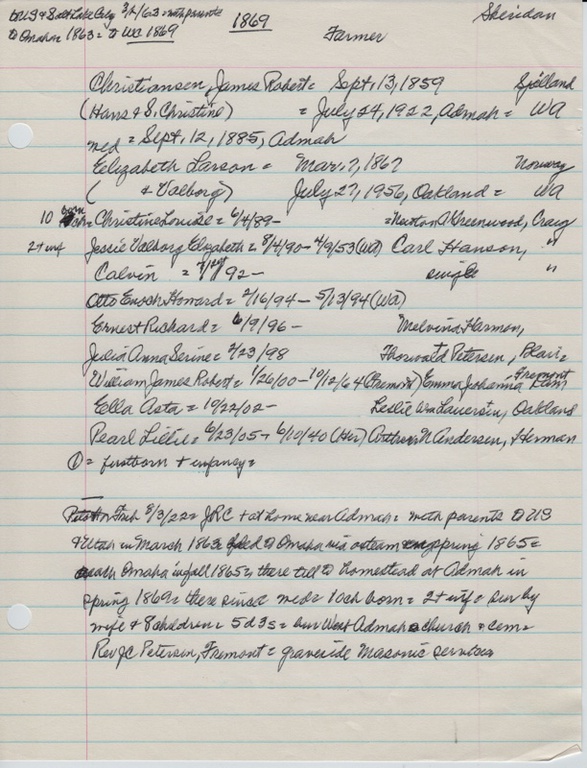 to US & Salt Lake City 3/1/63 = with parents
to Omaha 1863 = to WA 1869
1869
Sheridan
Farmer
Christiansen, James Robert = Sept, 13, 1859 Sjelland
(Hans & S. Christine) = July 24, 1922, Admah = WA
med = Sept, 12, 1885, Admah
Elizabeth Larson = Mar. 7, 1867 Norway
( & Valborg) July 27, 1956, Oakland = WA
10 born Christine Louise = 6/4/89 - = Newton A Greenwood, Craig
2 + inf Jessie Valborg Elizabeth = 8/4/90 - 4/9/53 (WA) Carl Hanson, "
Calvin = /92 - single "
Otto Enoch Howard = 2/16/94 - 5/13/94 (WA)
Ernest Richard = 6/9/96 - Melvina Harmon,
Julia Anna Serine = 2/23/98 Thorwald Petersen, Blair =
William James Robert = 1/26/00 - 10/12/64 (Fremont) Emma Johanna Fremont
Ella Asta = 10/22/02 - Leslie Wm Lauersen, Oakland
Pearl Lillie = 6/23/05 - 6/10/40 (Her) Arthur N Andersen, Herman
① = firstborn + infancy =
8/3/22 = JRC + at home near Admah = with parents to US
& Utah in March 1863 to Omaha via oxteam spring 1865 =
Omaha in fall 1865 = there till to homestead at Admah in
spring 1869 = there since med = 10 ch born = 2 + inf = sur by
wife & 8 children = 5 d 3 s = bur West Admah church & cem =
Rev JC Petersen, Fremont = graveside Masonic services